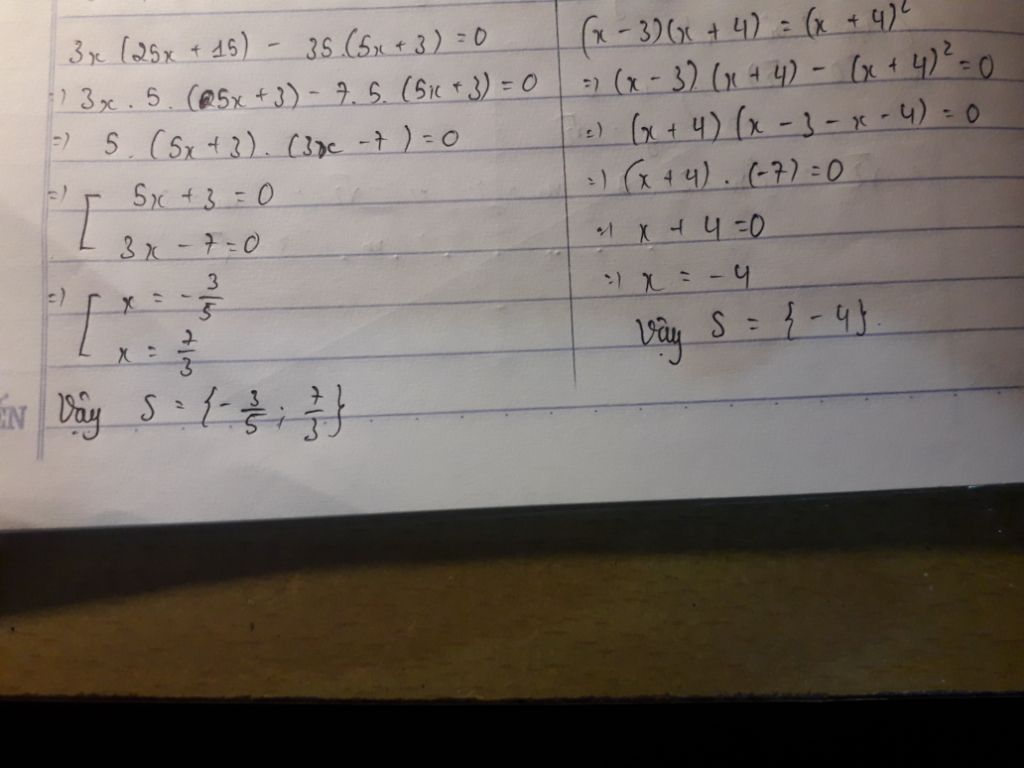 3x (25x + 15) - 35.(5x + 3) = 0
=) 3x . 5 . (5x + 3) - 7. 5. (5x + 3) = 0
=) 5 . (5x + 3) . (3x - 7) = 0
=) [ 5x + 3 = 0
3x - 7 = 0
=) [ x = - 3/5
x = 7/3
Vậy S = {- 3/5 ; 7/3}
(x - 3)(x + 4) = (x + 4)²
=) (x - 3) (x + 4) - (x + 4)² = 0
=) (x + 4) (x - 3 - x - 4) = 0
=) (x + 4) . (-7) = 0
=) x + 4 = 0
=) x = - 4
Vậy S = {- 4}.
ẾN